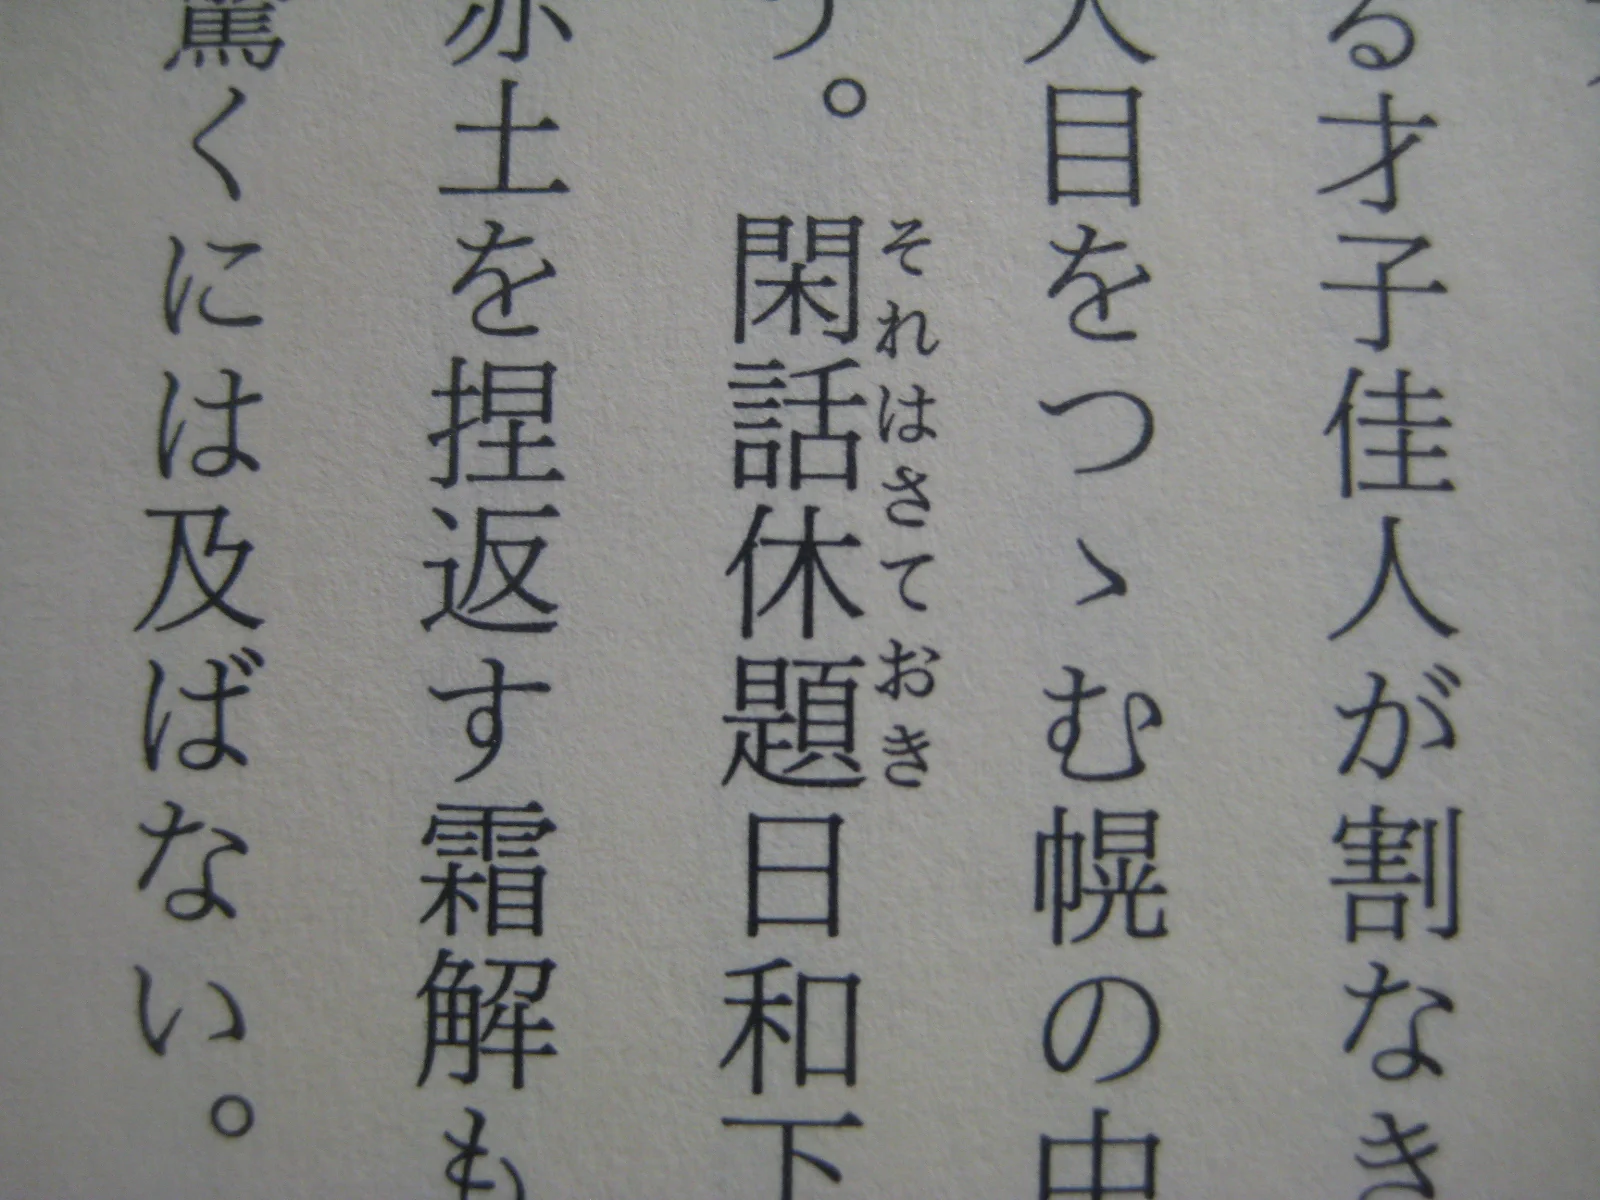 る才子佳人が割なき
人目をつゝむ幌の中
う。閑話休題日和下
それはさておき
赤土を捏返す霜解も
驚くには及ばない。